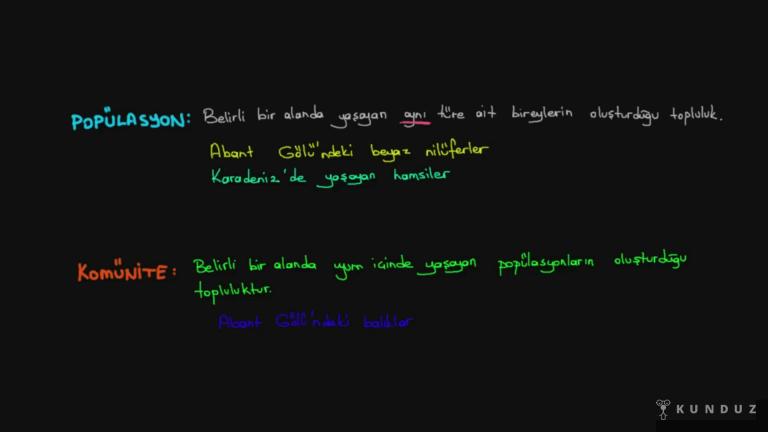 POPÜLASYON: Belirli bir alanda yaşayan aynı türe ait bireylerin oluşturduğu topluluk.
Abant Gölü'ndeki beyaz nilüferler
Karadeniz'de yaşayan hamsiler
KOMÜNİTE: Belirli bir alanda uyum içinde yaşayan popülasyonların oluşturduğu
topluluktur.
Abant Gölü'ndeki balıklar
KUNDUZ